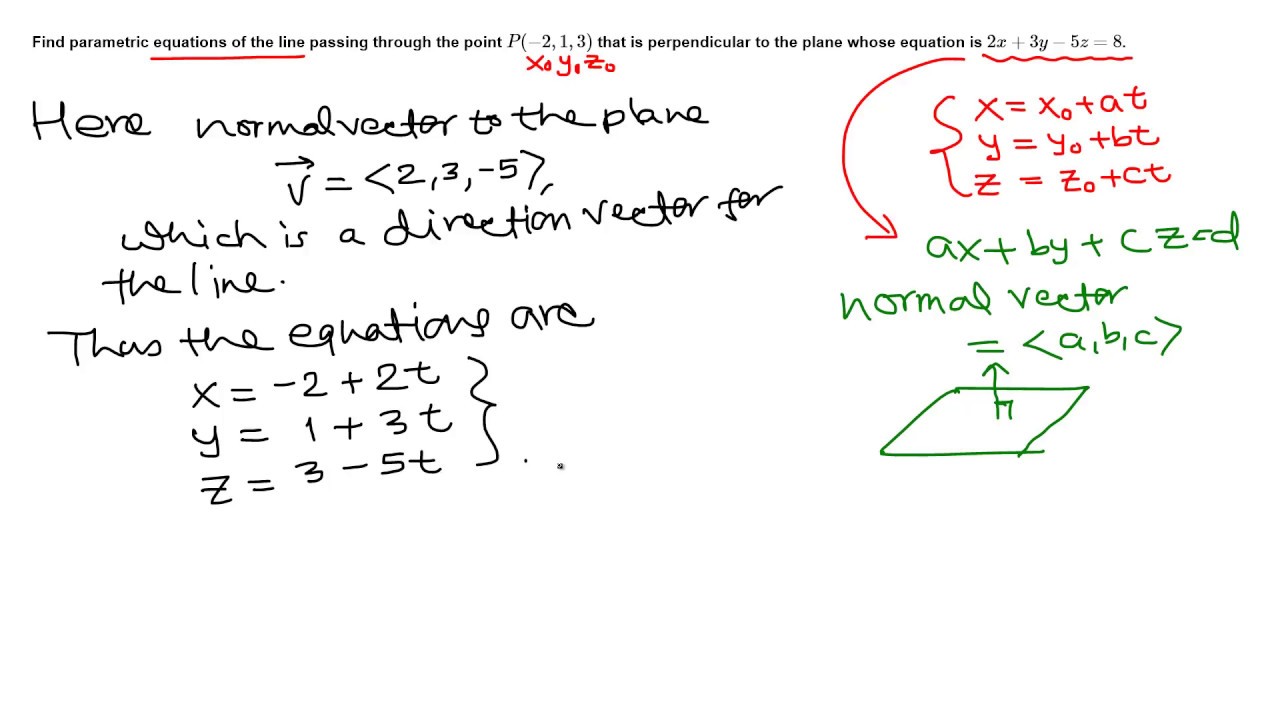 Find parametric equations of the line passing through the point P(−2, 1, 3) that is perpendicular to the plane whose equation is 2x + 3y − 5z = 8.
x₀ y₀ z₀
Here normal vector to the plane
v⃗ = <2, 3, -5>,
which is a direction vector for
the line.
Thus the equations are
x = -2 + 2t
y = 1 + 3t
z = 3 - 5t .
x = x₀ + at
y = y₀ + bt
z = z₀ + ct
ax + by + cz = d
normal vector
= <a, b, c>